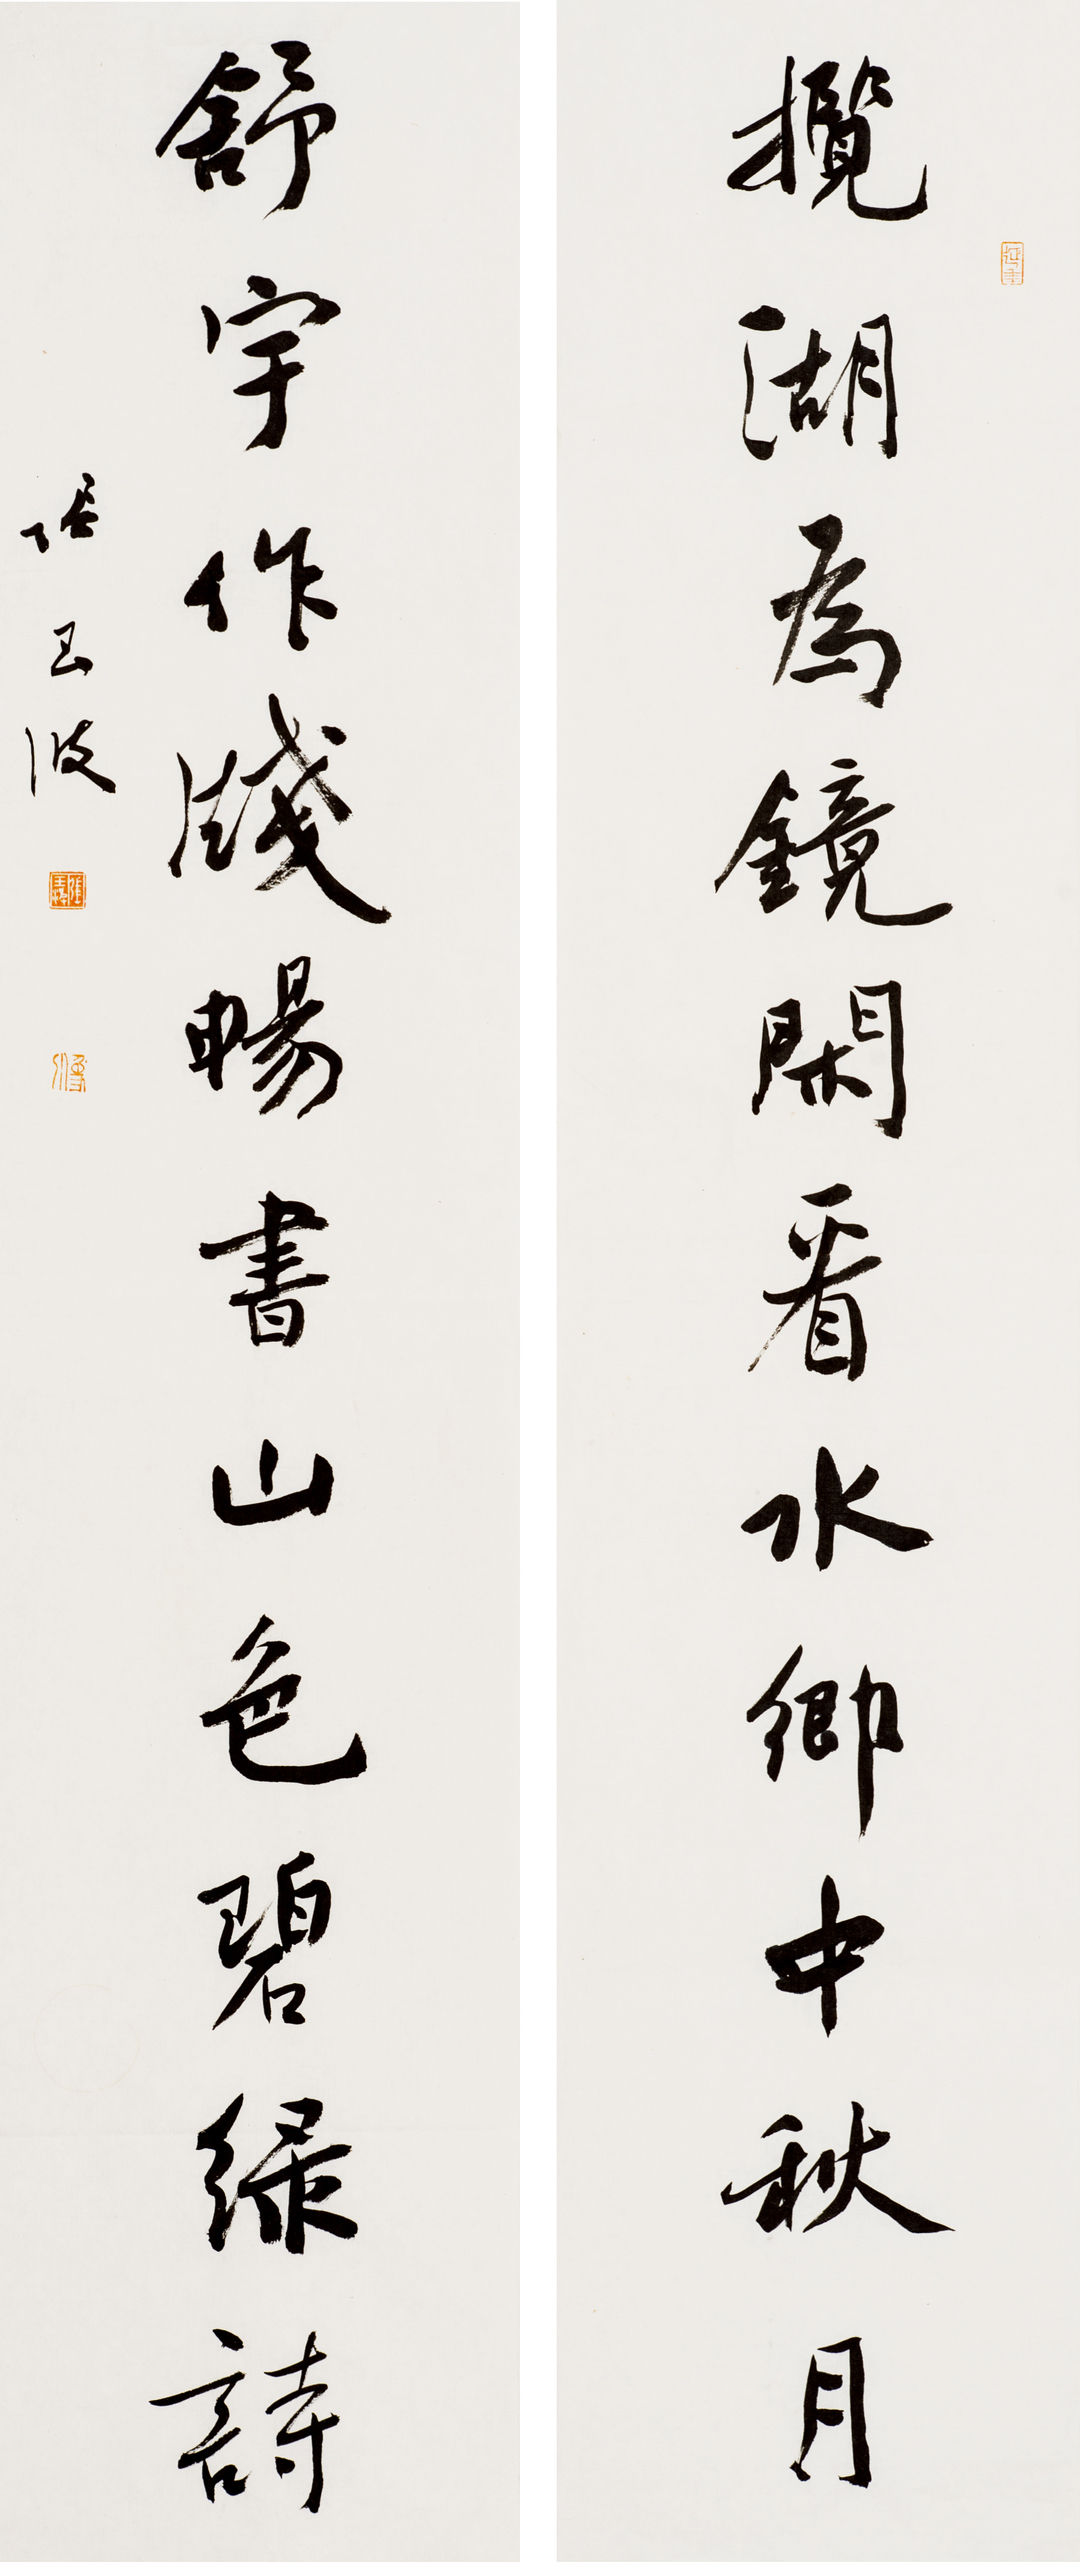 攬湖為鏡閑看水鄉中秋月
舒宇作牋暢書山色碧綠詩
延年